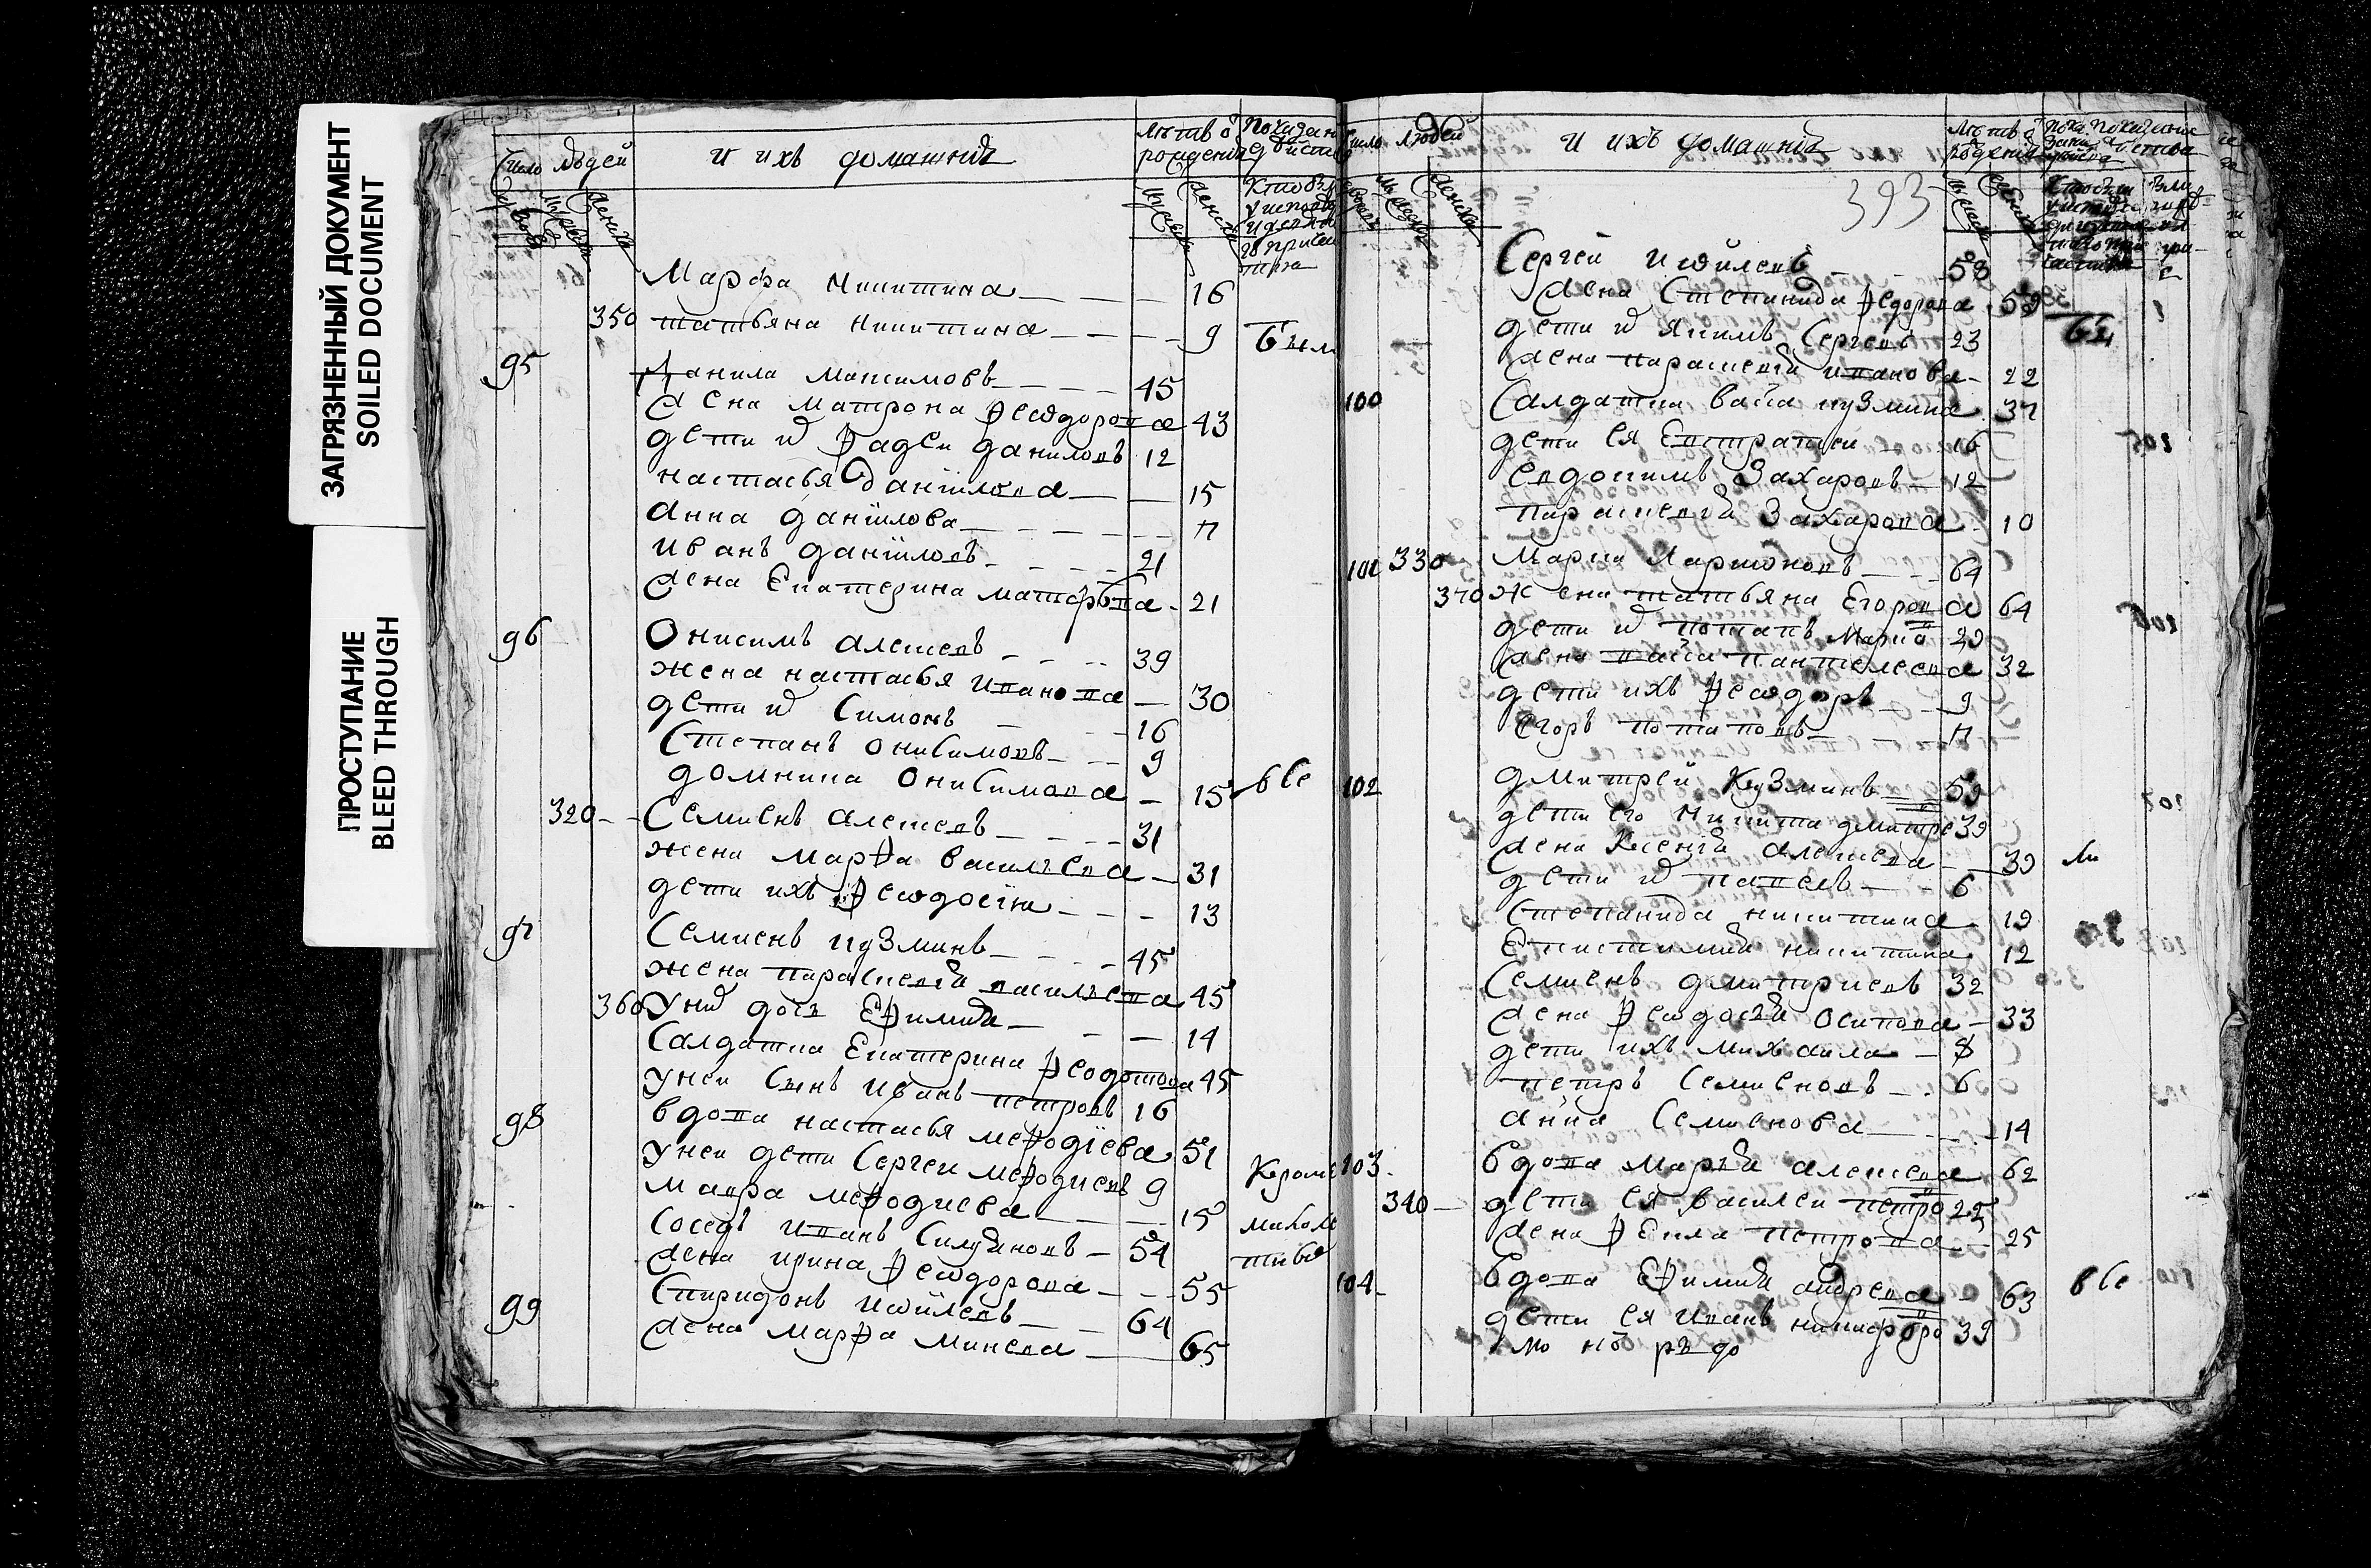 ЗАГРЯЗНЕННЫЙ ДОКУМЕНТ
SOILED DOCUMENT
ПРОСТУПАНИЕ
BLEED THROUGH
Число людей и ихъ домашнiе
Марфа Никитина 16
350 татьяна никитина 9 Был
95 Данила максимовъ 45
жена матрона Феѡдорова 43
дети их Фадеи даниловъ 12
настасья данїилова 15
анна данїилова 7
иванъ данїиловъ 21
жена Екатерина матфѣева 21
96 Онисимъ алексевъ 39
жена настасья иванова 30
дети их Симонъ 16
Степанъ онисимовъ 9
домника онисимова 15 все
320 Семиенъ алексевъ 31
жена марфа василъева 31
дети ихъ Феѡдосїя 13
97 Семиенъ кузминъ 45
жена парасковїя василъева 45
360 у них дочь Ефимия 14
Салдатка Екатерина Федотова 45
у неи сынъ иванъ петровъ 16
98 вдова настасья мефодїева 51
у неи дети Сергеи мефодиевъ 9 Кроме
мавра мефодиева 15 малоле
соседъ иванъ Силуяновъ 54 тства
жена ирина Феѡдорова 55
99 Спиридонъ иѡвлевъ 64
жена марфа минева 65
людей и ихъ домашнiе
393
Сергей иѡвлевъ 58
жена Степанида Федорова 59
дети их якимъ Сергеевъ 23 бы
жена парасковїя иванова 22
100 Салдатка васа кузмина 37
дети ея Евстратеи 16
Евдокимъ Захаровъ 12
парасковїя Захарова 10
101 330 Марка Ларионовъ 64
370 жена татьяна Егорова 64
дети их потапъ марко 29
жена васа пантелеева 32
дети ихъ Феѡдоръ 9
Егоръ потаповъ 7
102 дмитрей Кузминъ 59
дети его Никита дмитре 39
жена Ксенїя алексева 39 ли
дети их павелъ 6
Степанида никитина 19
Епистимия никитина 12
Семиенъ дмитриевъ 32
жена Феѡдосья осипова 33
дети ихъ михаила 8
петръ Семиеновъ 6
анна Семиенова 14
103 вдова марья алексева 62
340 дети ея василеи петро 25
жена Фекла петрова 25
104 вдова Ефимия андрева 63 все
дети ея иванъ никифоро 39